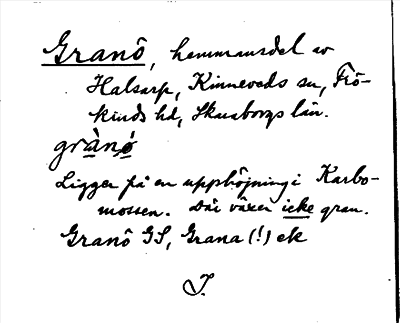 Granö, hemmansdel av
Halsarp, Kinneveds sn, Frö-
kinds hd, Skaraborgs län.
grànö́
Ligger på en upphöjning i Karbo-
mossen. Där växer icke gran.
Granö GS, Grana (!) ek
J.